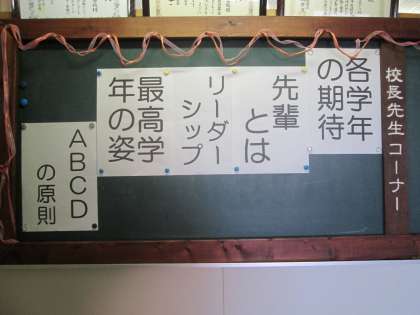 校長先生コーナー
各学年
の期待
先輩
とは
リーダー
シップ
最高学
年の姿
ABCD
の原則